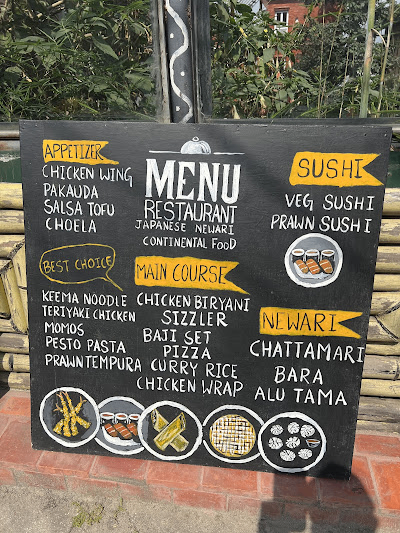 APPETIZER
CHICKEN WING
PAKAUDA
SALSA TOFU
CHOELA
MENU
RESTAURANT
JAPANESE NEWARI
CONTINENTAL FOOD
SUSHI
VEG SUSHI
PRAWN SUSHI
BEST CHOICE
KEEMA NOODLE
TERIYAKI CHICKEN
MOMOS
PESTO PASTA
PRAWN TEMPURA
MAIN COURSE
CHICKEN BIRYANI
SIZZLER
BAJI SET
PIZZA
CURRY RICE
CHICKEN WRAP
NEWARI
CHATTAMARI
BARA
ALU TAMA